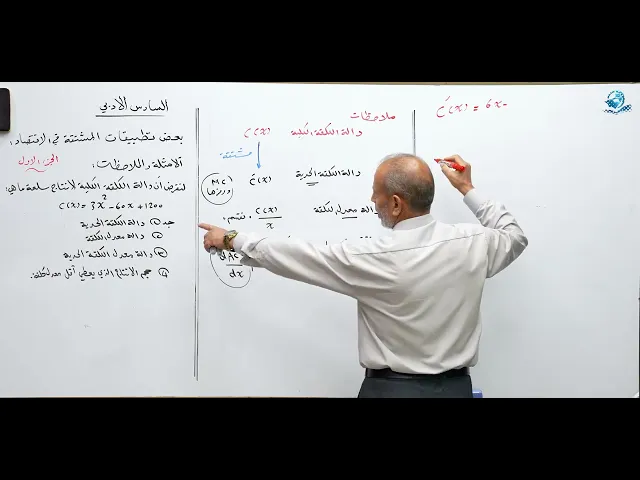 السادس الأدبي
بعض تطبيقات المشتقة في الاقتصاد:
الأمثلة والملاحظات: الجزء الأول
لنفرض أن دالة الكلفة الكلية لانتاج سلعة ما هي:
C(x) = 3x² - 60x + 1200
جد ① دالة الكلفة الحدية
② دالة معدل الكلفة
③ دالة معدل الكلفة الحدية
④ حجم الانتاج الذي يعطي أقل معدل كلفة.
ملاحظات
دالة الكلفة الكلية C(x)
مشتقة
دالة الكلفة الحدية C′(x) MC
دالة معدل الكلفة C(x)/x نقسم
dAC/dx
C′(x) = 6x-